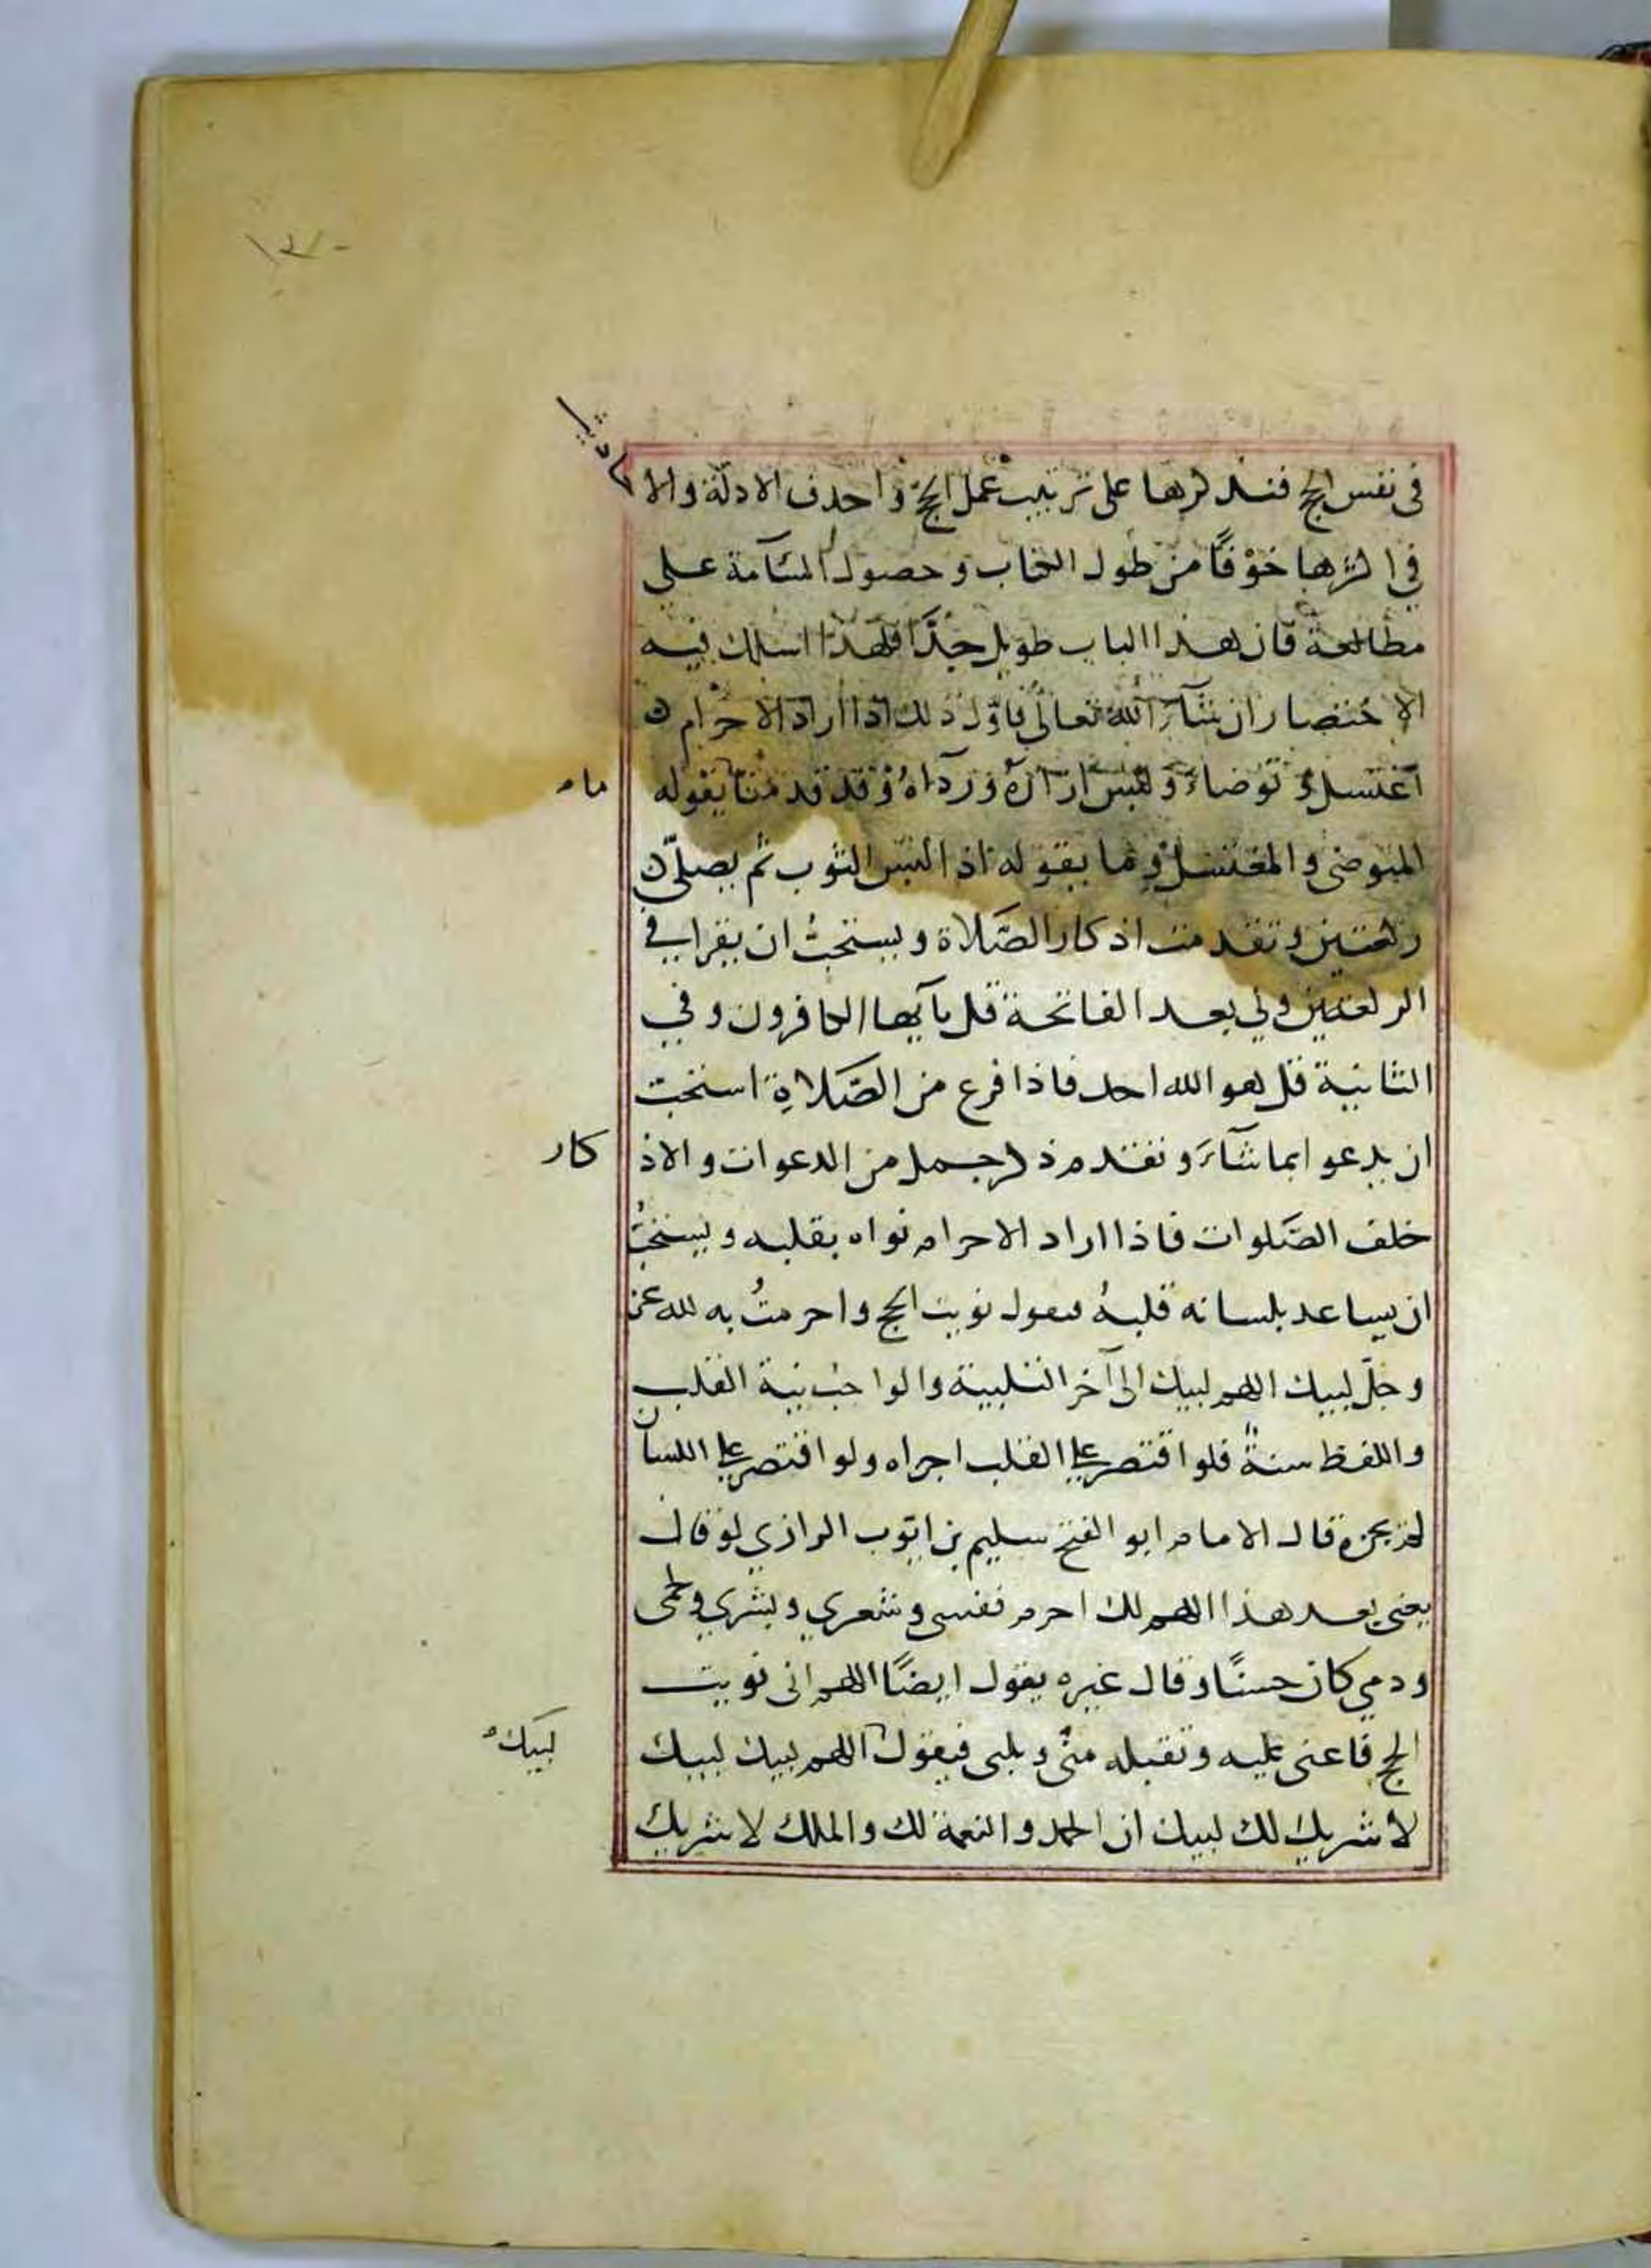 في نفس الحج فنذكرها على ترتيب عمل الحج واحذف الادلة والا حاديث
في اكثرها خوفًا من طول الكتاب وحصول السآمة على
مطالعة فان هذا الباب طويل جدًّا فلهذا اسلك فيه
الاختصار ان شآء الله تعالى فاوّل ذلك اذا اراد الاحرام
اغتسل وتوضاء ولبس ازاره ورداه وقد قدمنا يقوله ما
المتوضى والمغتسل وما يقوله اذا لبس الثوب ثم يصلّى
ركعتين وتقدمت اذكار الصّلاة ويستحبّ ان يقرا في
الركعتين ولي بعد الفاتحة قل يآيها الكافرون وفي
الثانية قل هو الله احد فاذا فرغ من الصّلاةِ استحبّ
ان يدعوا بما شآءَ وتقدم ذكر جمل من الدعوات والاذ كار
خلف الصّلوات فاذا اراد الاحرام نواه بقلبه ويستحبُّ
ان يساعد بلسانه قلبهُ فيقول نويت الحج واحرمتُ به لله عز
وجلّ لبيك اللهم لبيك الى آخر التلبية والواجب نية القلب
واللفظ سنةٌ فلو اقتصر على القلب اجزاه ولو اقتصر على اللسان
لم يجزه قال الامام ابو الفتح سليم بن ايّوب الرازي لو قال
يعني بعد هذا اللهم لك احرم نفسي وشعري وبشري ولحمى
ودمي كان حسنًا وقال غيره يقول ايضًا اللهم اني نويت
الحج فاعني عليه وتقبله منّي ويلبى فيقول اللهم لبيك لبيك لبيك
لا شريك لك لبيك ان الحمد والنعمة لك والملك لا شريك